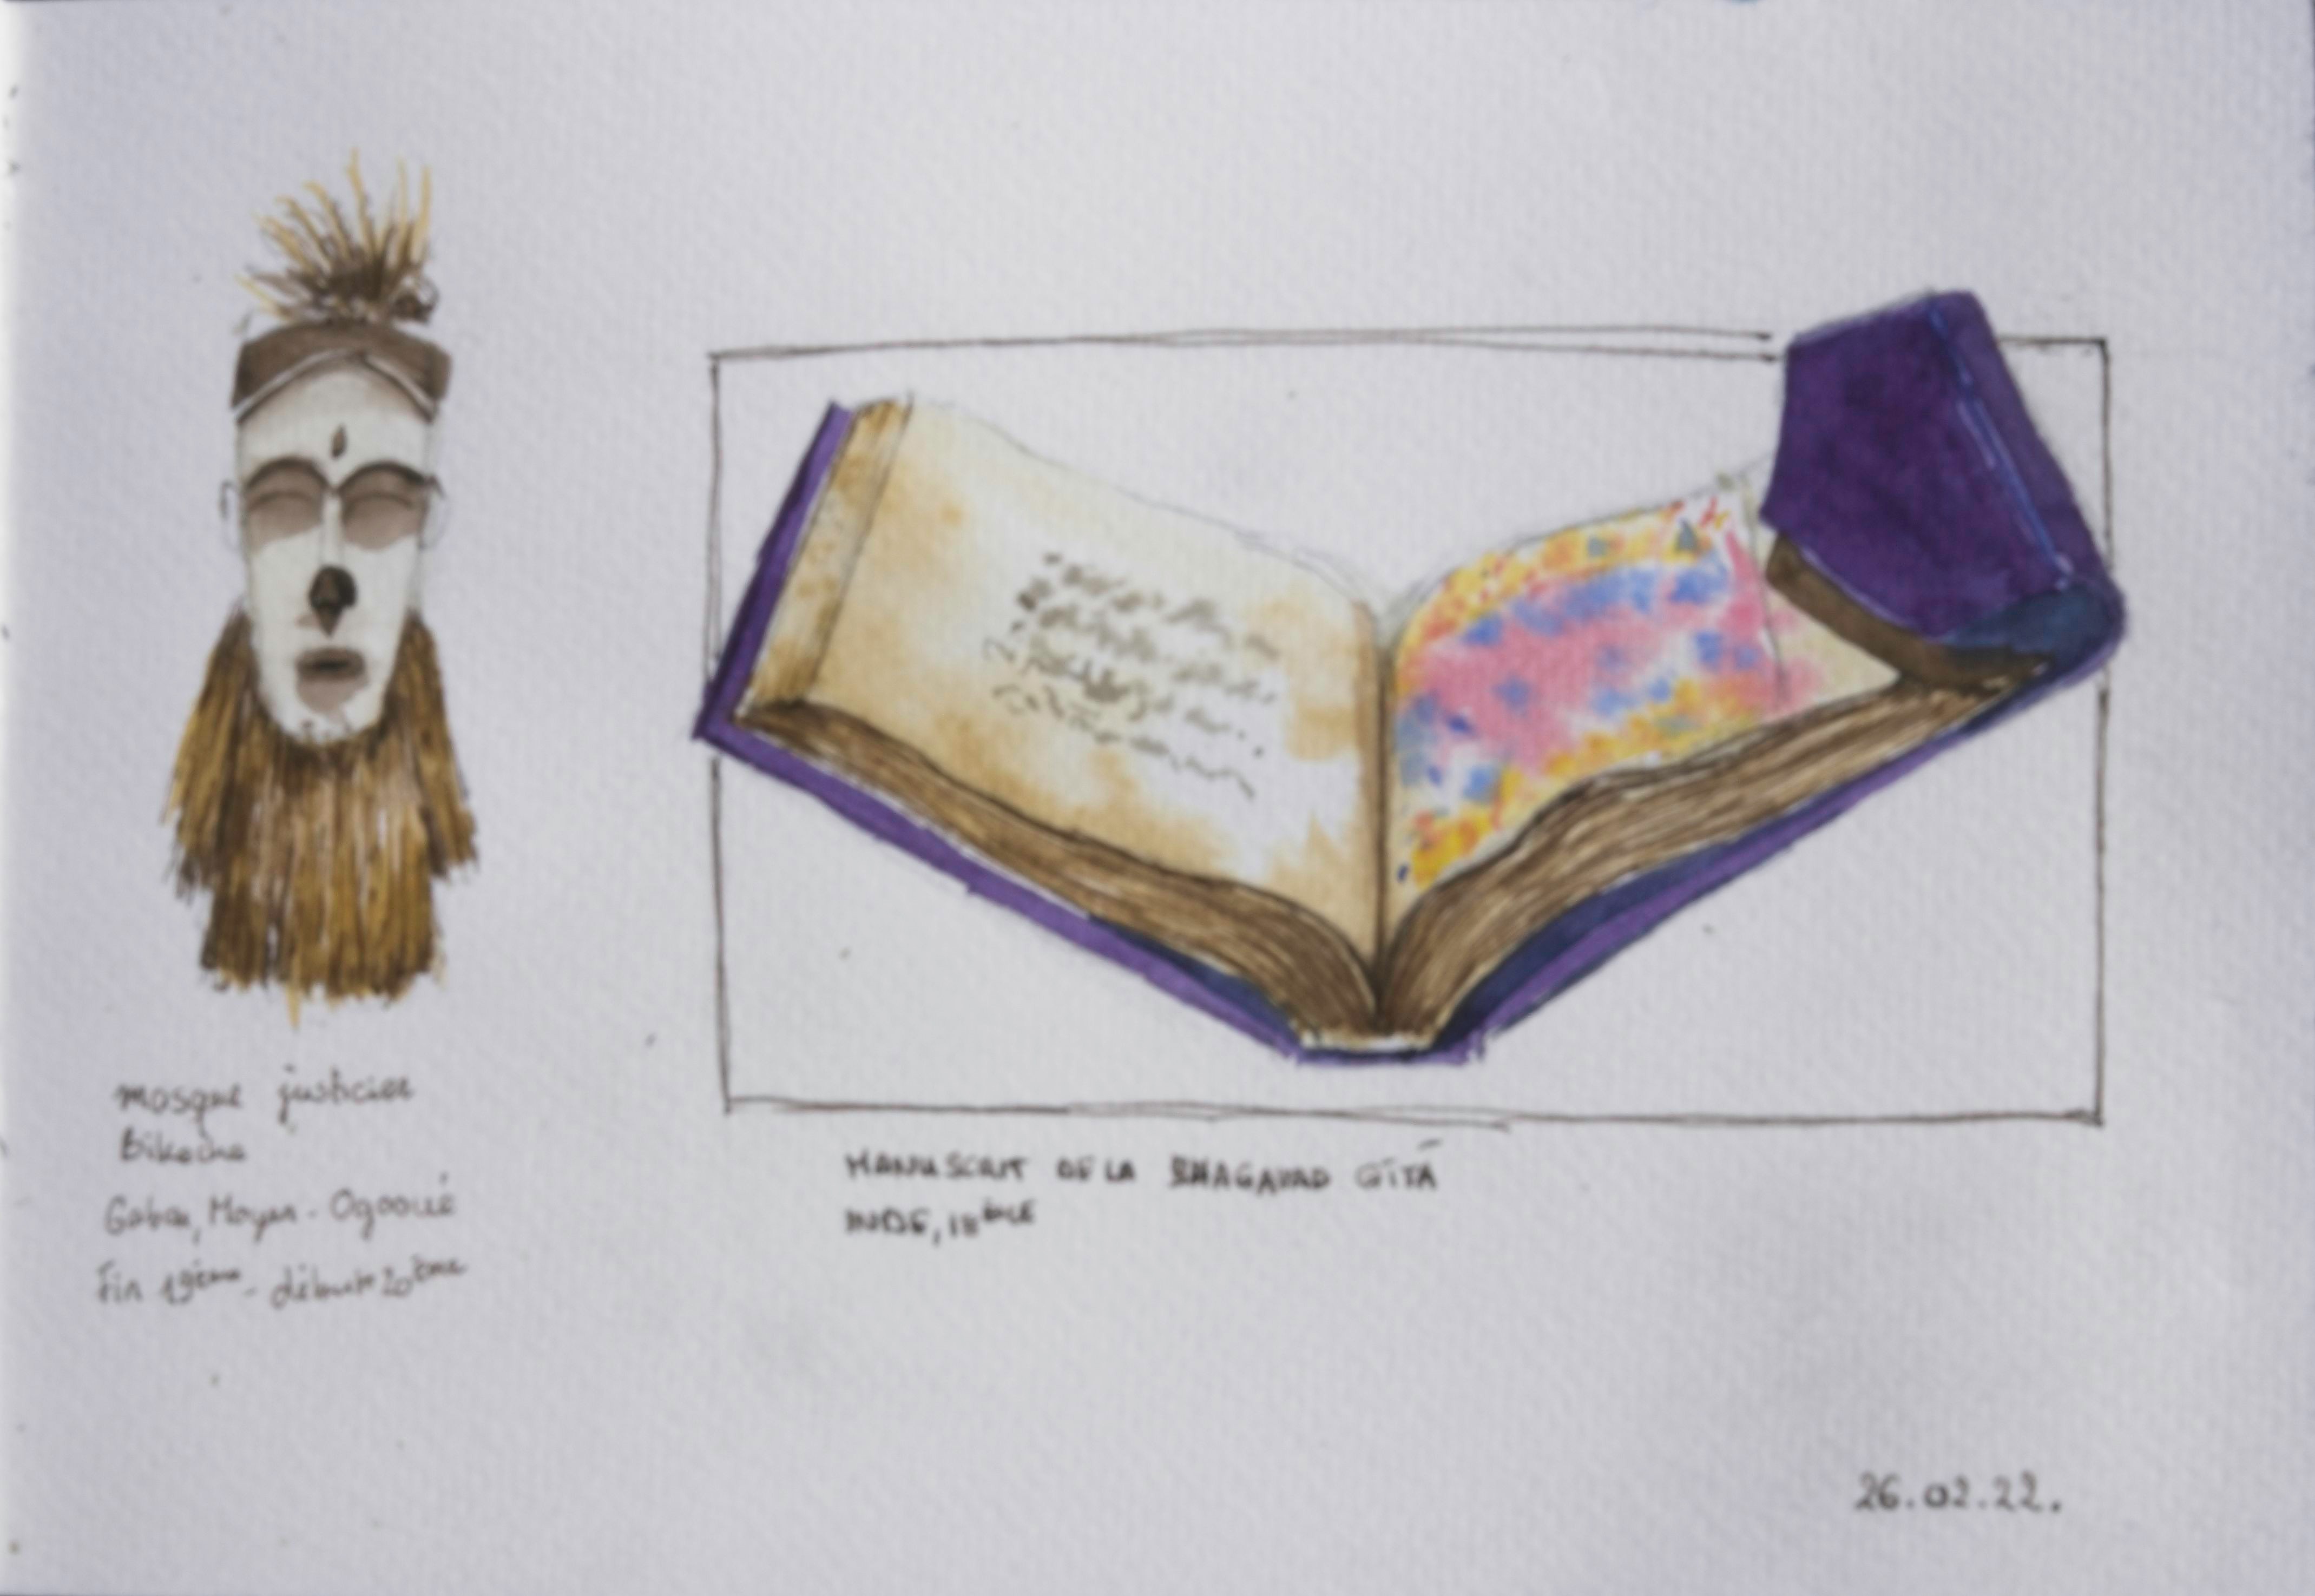 masque justicier
Gabon, Moyen-Ogooué
Fin 19ème - début 20ème
MANUSCRIT DE LA BHAGAVAD GĪTĀ
INDE, 18ÈME
26.02.22.